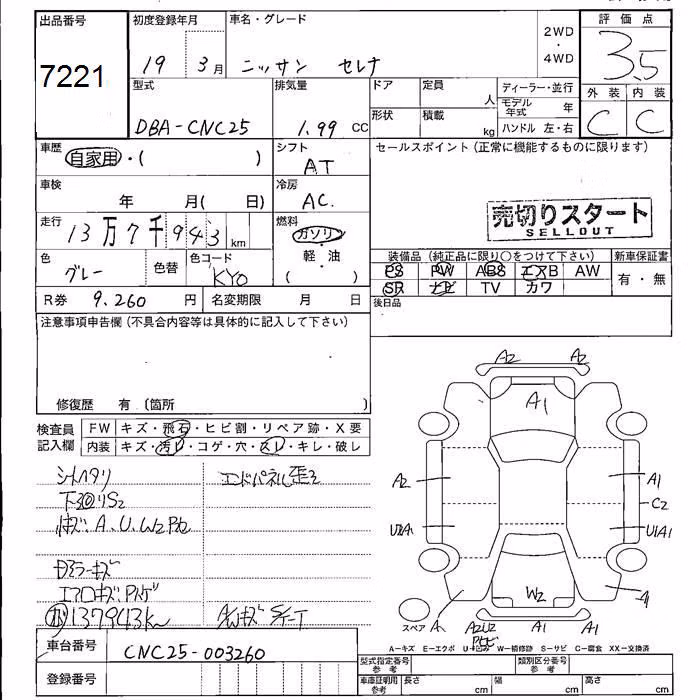 出品番号 初度登録年月 車名・グレード 評価点
7221 19 3月 ニッサン セレナ 2WD・4WD 3.5
型式 排気量 ドア 定員 人 ディーラー・並行 外装 内装
DBA-CNC25 1.99 CC 形状 積載 kg モデル年式 年 C C
ハンドル 左・右
車歴 自家用・( ) シフト AT セールスポイント(正常に機能するものに限ります)
車検 年 月( 日) 冷房 AC.
売切りスタート
SELLOUT
走行 13万7千943km 燃料 ガソリン
軽・油
( )
色 グレー 色替 色コード KY0
装備品(純正品に限り○をつけて下さい) 新車保証書
PS PW ABS エアB AW 有・無
SR ナビ TV カワ
R券 9.260 円 名変期限 月 日 後日品
注意事項申告欄(不具合内容等は具体的に記入して下さい)
修復歴 有 (箇所 )
検査員記入欄 FW キズ・飛石・ヒビ割・リペア跡・X要
内装 キズ・汚れ・コゲ・穴・スレ・キレ・破レ
シートヘタリ エンドパネル歪2
S2
A.U.W2
ミラーキズ
エアロキズ
137943km A/Wキズ
A2 A2
A1
A2 A1
C2
U2A1 U1A1
W2
スペア A A2U2 A1 A1
A-キズ E-エクボ U-凹み W-補修跡 S-サビ C-腐食 XX-交換済
車台番号 CNC25-003260
型式指定番号 参考 類別区分番号 参考
登録番号 車庫証明用 参考 長さ cm 幅 cm 高さ cm